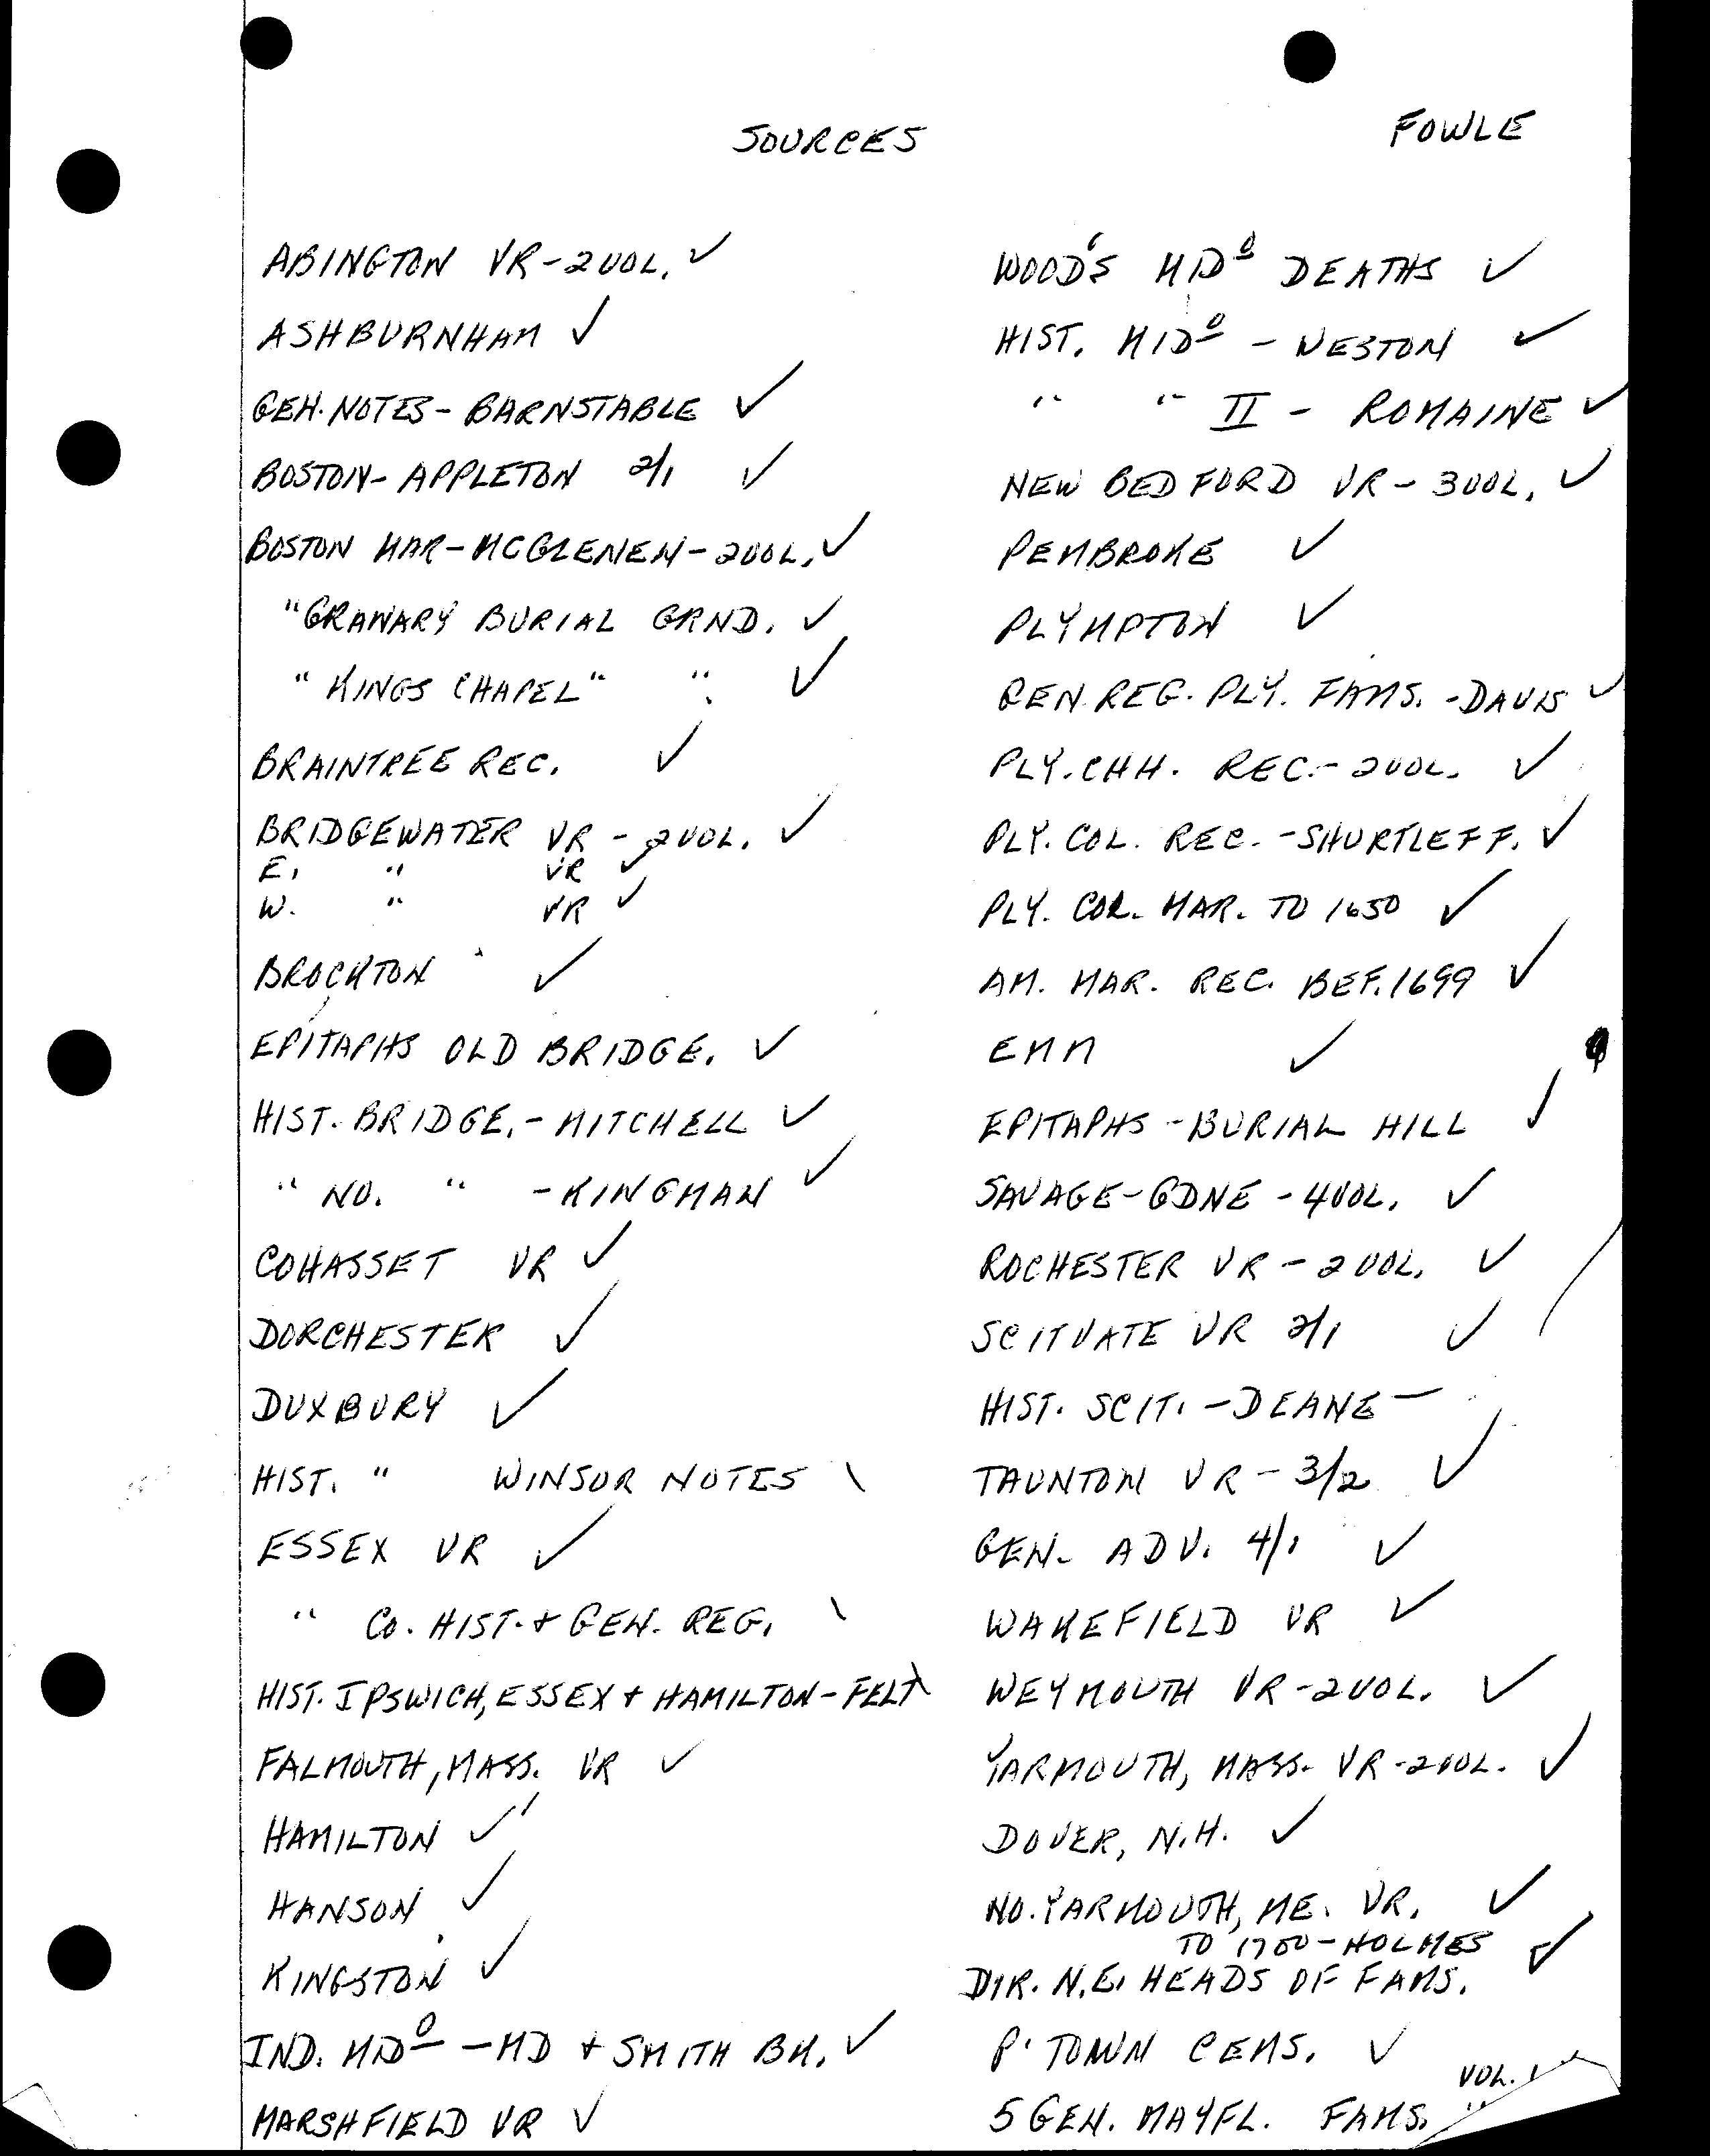 SOURCES
FOWLE
ABINGTON VR-2VOL. ✓
ASHBURNHAM ✓
GEN. NOTES - BARNSTABLE ✓
BOSTON - APPLETON 2/1 ✓
BOSTON MAR - MCGLENEN - 2VOL. ✓
" GRANARY BURIAL GRND. ✓
" KINGS CHAPEL " " ✓
BRAINTREE REC. ✓
BRIDGEWATER VR - 2VOL. ✓
E. " VR ✓
W. " VR ✓
BROCKTON ✓
EPITAPHS OLD BRIDGE. ✓
HIST. BRIDGE. - MITCHELL ✓
" NO. " - KINGMAN ✓
COHASSET VR ✓
DORCHESTER ✓
DUXBURY ✓
HIST. " WINSOR NOTES \
ESSEX VR ✓
" CO. HIST. + GEN. REG. \
HIST. IPSWICH, ESSEX + HAMILTON - FELT \
FALMOUTH, MASS. VR ✓
HAMILTON ✓
HANSON ✓
KINGSTON ✓
IND. MDO - MD + SMITH BK. ✓
MARSHFIELD VR ✓
WOOD'S MDO DEATHS ✓
HIST. MIDO - WESTON ✓
" " II - ROMAINE ✓
NEW BEDFORD VR - 3VOL. ✓
PEMBROKE ✓
PLYMPTON ✓
GEN. REG. PLY. FAMS. - DAVIS ✓
PLY. CHH. REC. - 2VOL. ✓
PLY. COL. REC. - SHURTLEFF. ✓
PLY. COL. MAR. TO 1650 ✓
AM. MAR. REC. BEF. 1699 ✓
EMM ✓
EPITAPHS - BURIAL HILL ✓
SAVAGE - GDNE - 4VOL. ✓
ROCHESTER VR - 2VOL. ✓
SCITUATE VR 2/1 ✓
HIST. SCIT. - DEANE —
TAUNTON VR - 3/2 ✓
GEN. ADV. 4/1 ✓
WAKEFIELD VR ✓
WEYMOUTH VR - 2VOL. ✓
YARMOUTH, MASS. VR - 2VOL. ✓
DOVER, N.H. ✓
NO. YARMOUTH, ME. VR. ✓
TO 1700 - HOLMES ✓
DIR. N.E. HEADS OF FAMS.
P'TOWN CEMS. ✓
VOL. 1
5 GEN. MAYFL. FAMS. "